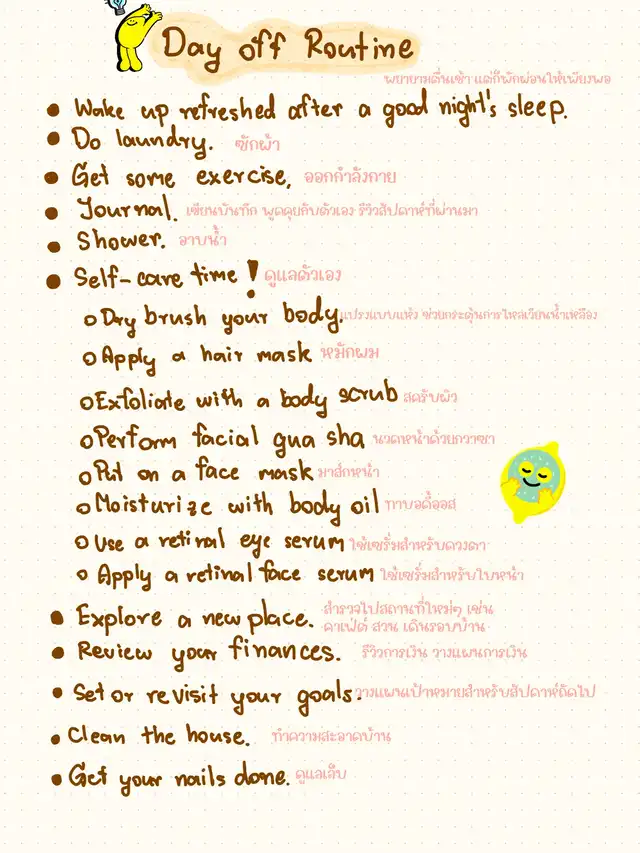 Day off Routine
พยายามตื่นเช้า แต่ก็พักผ่อนให้เพียงพอ
• Wake up refreshed after a good night's sleep.
• Do laundry. ซักผ้า
• Get some exercise, ออกกำลังกาย
• Journal. เขียนบันทึก พูดคุยกับตัวเอง รีวิวสัปดาห์ที่ผ่านมา
• Shower. อาบน้ำ
• Self-care time! ดูแลตัวเอง
○ Dry brush your body. แปรงแบบแห้ง ช่วยกระตุ้นการไหลเวียนน้ำเหลือง
○ Apply a hair mask หมักผม
○ Exfoliate with a body scrub สครับผิว
○ Perform facial gua sha นวดหน้าด้วยกวาซา
○ Put on a face mask มาส์กหน้า
○ Moisturize with body oil ทาบอดี้ออส
○ Use a retinal eye serum ใช้เซรั่มสำหรับดวงตา
○ Apply a retinal face serum ใช้เซรั่มสำหรับใบหน้า
• Explore a new place. สำรวจไปสถานที่ใหม่ๆ เช่น
คาเฟ่ต์ สวน เดินรอบบ้าน
• Review your finances. รีวิวการเงิน วางแผนการเงิน
• Set or revisit your goals. วางแผนเป้าหมายสำหรับสัปดาห์ถัดไป
• Clean the house. ทำความสะอาดบ้าน
• Get your nails done. ดูแลเล็บ